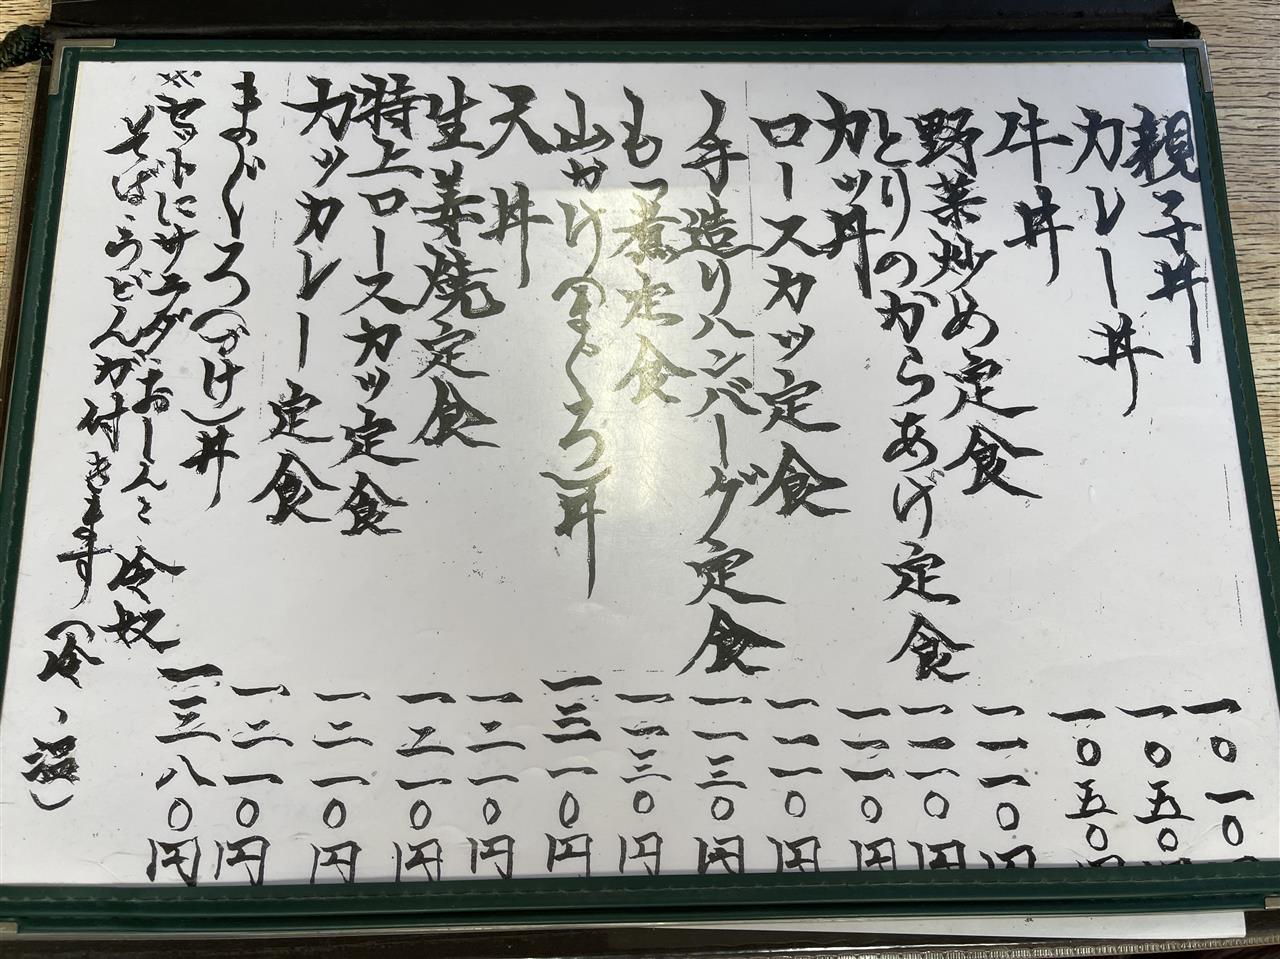 親子丼 一〇一〇
カレー丼 一〇五〇円
牛丼 一〇五〇円
野菜炒め定食 一一一〇円
とりのからあげ定食 一一一〇円
カツ丼 一一一〇円
ロースカツ定食 一一一〇円
手造りハンバーグ定食 一一三〇円
もつ煮定食 一一三〇円
山かけ(まぐろ)丼 一三一〇円
天丼 一二一〇円
生姜焼定食 一二一〇円
特上ロースカツ定食 一二一〇円
カツカレー定食 一二一〇円
まぐろ(づけ)丼 一三八〇円
※セットにサラダ、おしんこ、冷奴
そば、うどんが付きます(冷、温)